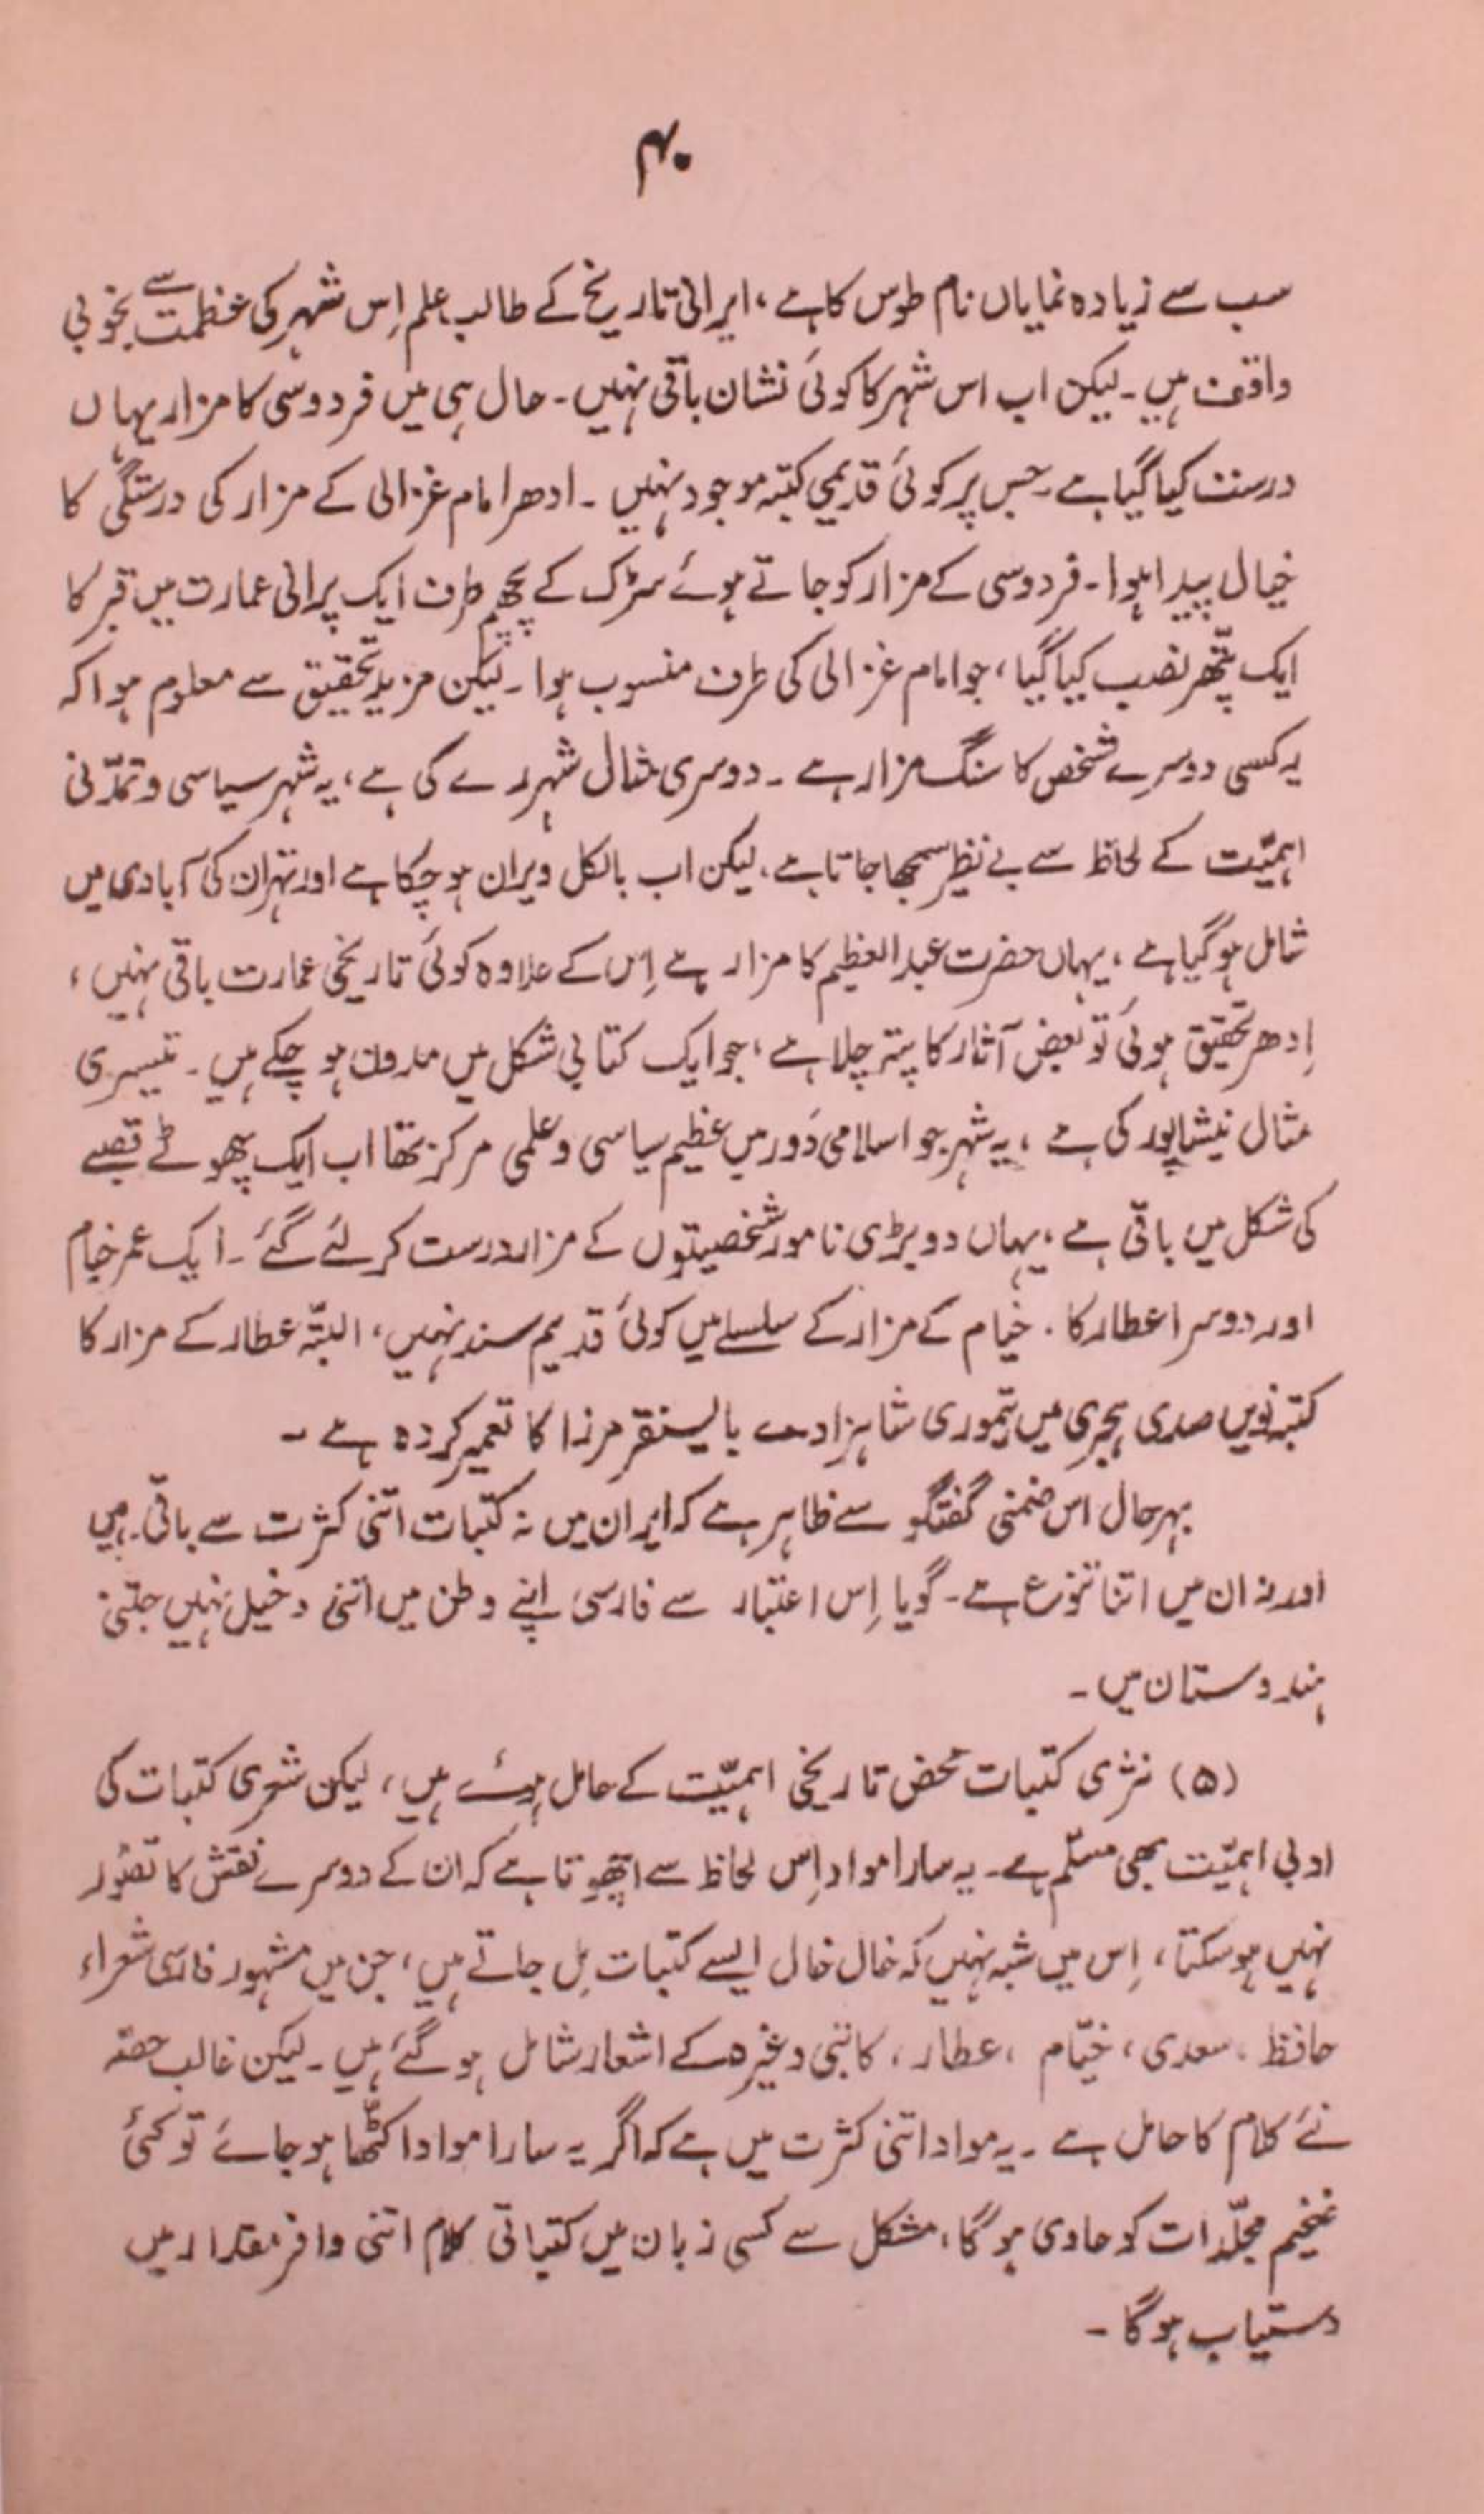 ۴۰
سب سے زیادہ نمایاں نام طوس کا ہے ، ایرانی تاریخ کے طالب علم اِس شہر کی عظمت سے بخوبی
واقف ہیں ۔ لیکن اب اس شہر کا کوئی نشان باقی نہیں ۔ حال ہی میں فردوسی کا مزار یہاں
درست کیا گیا ہے ۔ جس پر کوئی قدیمی کتبہ موجود نہیں ۔ ادھر امام غزالی کے مزار کی درستگی کا
خیال پیدا ہوا ۔ فردوسی کے مزار کو جاتے ہوئے سڑک کے پچھم طرف ایک پرانی عمارت میں قبر کا
ایک پتّھر نصب کیا گیا ، جو امام غزالی کی طرف منسوب ہوا ۔ لیکن مزید تحقیق سے معلوم ہوا کہ
یہ کسی دوسرے شخص کا سنگ مزار ہے ۔ دوسری مثال شہر رے کی ہے ، یہ شہر سیاسی و تمدّنی
اہمیّت کے لحاظ سے بے نظیر سمجھا جاتا ہے ، لیکن اب بالکل ویران ہو چکا ہے اور تہران کی آبادی میں
شامل ہو گیا ہے ، یہاں حضرت عبد العظیم کا مزار ہے اِس کے علاوہ کوئی تاریخی عمارت باقی نہیں ،
اِدھر تحقیق ہوئی تو بعض آثار کا پتہ چلا ہے ، جو ایک کتابی شکل میں مدون ہو چکے ہیں ۔ تیسری
مثال نیشاپور کی ہے ، یہ شہر جو اسلامی دَور میں عظیم سیاسی و علمی مرکز تھا اب ایک چھوٹے قصبے
کی شکل میں باقی ہے ، یہاں دو بڑی نامور شخصیتوں کے مزار درست کر لئے گئے ۔ ایک عمر خیام
اور دوسرا عطار کا ۔ خیام کے مزار کے سلسلے میں کوئی قدیم سند نہیں ، البتّہ عطار کے مزار کا
کتبہ نویں صدی ہجری میں تیموری شاہزادے بایسنقر مرزا کا تعمیر کردہ ہے ۔
بہرحال اس ضمنی گفتگو سے ظاہر ہے کہ ایران میں نہ کتبات اتنی کثرت سے باقی ہیں
اور نہ ان میں اتنا تنوع ہے ۔ گویا اِس اعتبار سے فارسی اپنے وطن میں اتنی دخیل نہیں جتنی
ہندوستان میں ۔
(۵) نثری کتبات محض تاریخی اہمیّت کے حامل ہوئے ہیں ، لیکن شعری کتبات کی
ادبی اہمیّت بھی مسلّم ہے ۔ یہ سارا مواد اِس لحاظ سے اچھوتا ہے کہ ان کے دوسرے نقش کا تصوّر
نہیں ہو سکتا ، اِس میں شبہ نہیں کہ خال خال ایسے کتبات مِل جاتے ہیں ، جن میں مشہور فارسی شعراء
حافظ ، سعدی ، خیّام ، عطار ، کاتبی وغیرہ کے اشعار شامل ہو گئے ہیں ۔ لیکن غالب حصّہ
نئے کلام کا حامل ہے ۔ یہ مواد اتنی کثرت میں ہے کہ اگر یہ سارا مواد اکٹّھا ہو جائے تو کئی
ضخیم مجلّدات کو حاوی ہو گا ، مشکل سے کسی زبان میں کتباتی کلام اتنی وافر مقدار میں
دستیاب ہو گا ۔